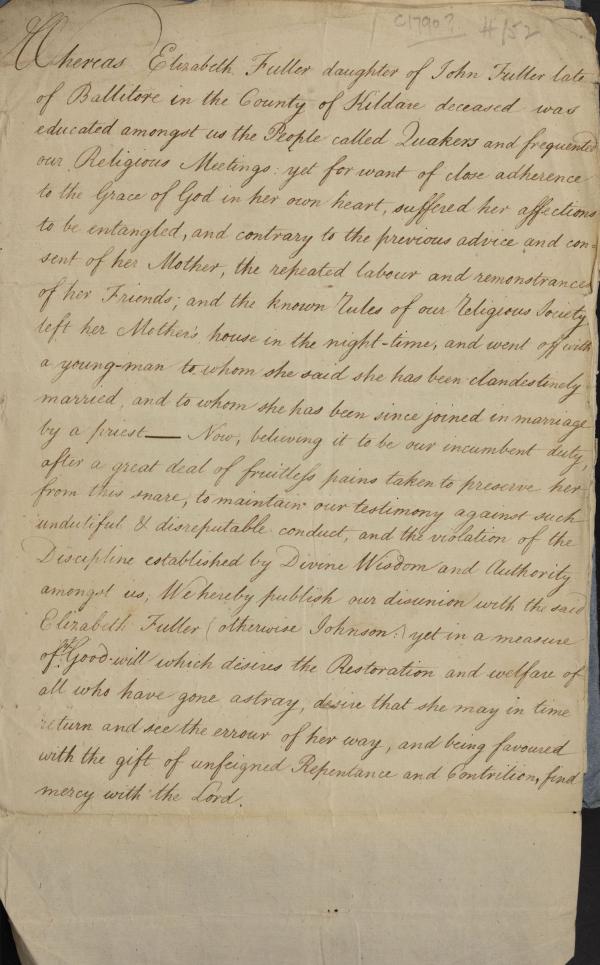 c1790?. H/52
Whereas Elizabeth Fuller daughter of John Fuller late
of Ballitore in the County of Kildare deceased was
educated amongst us the People called Quakers and frequented
our Religious Meetings: yet for want of close adherence
to the Grace of God in her own heart, suffered her affections
to be entangled, and contrary to the previous advice and con-
sent of her Mother, the repeated labour and remonstrances
of her Friends; and the known rules of our religious Society
left her Mother's house in the night-time, and went off with
a young-man to whom she said she has been clandestinely
married, and to whom she has been since joined in marriage
by a priest — Now, believing it to be our incumbent duty,
after a great deal of fruitless pains taken to preserve her
from this snare, to maintain our testimony against such
undutiful & disreputable conduct, and the violation of the
Discipline established by Divine Wisdom and Authority
amongst us, We hereby publish our disunion with the said
Elizabeth Fuller (otherwise Johnson:) yet in a measure
of Good-will which desires the Restoration and welfare of
all who have gone astray, desire that she may in time
return and see the errour of her way, and being favoured
with the gift of unfeigned Repentance and Contrition, find
mercy with the Lord.